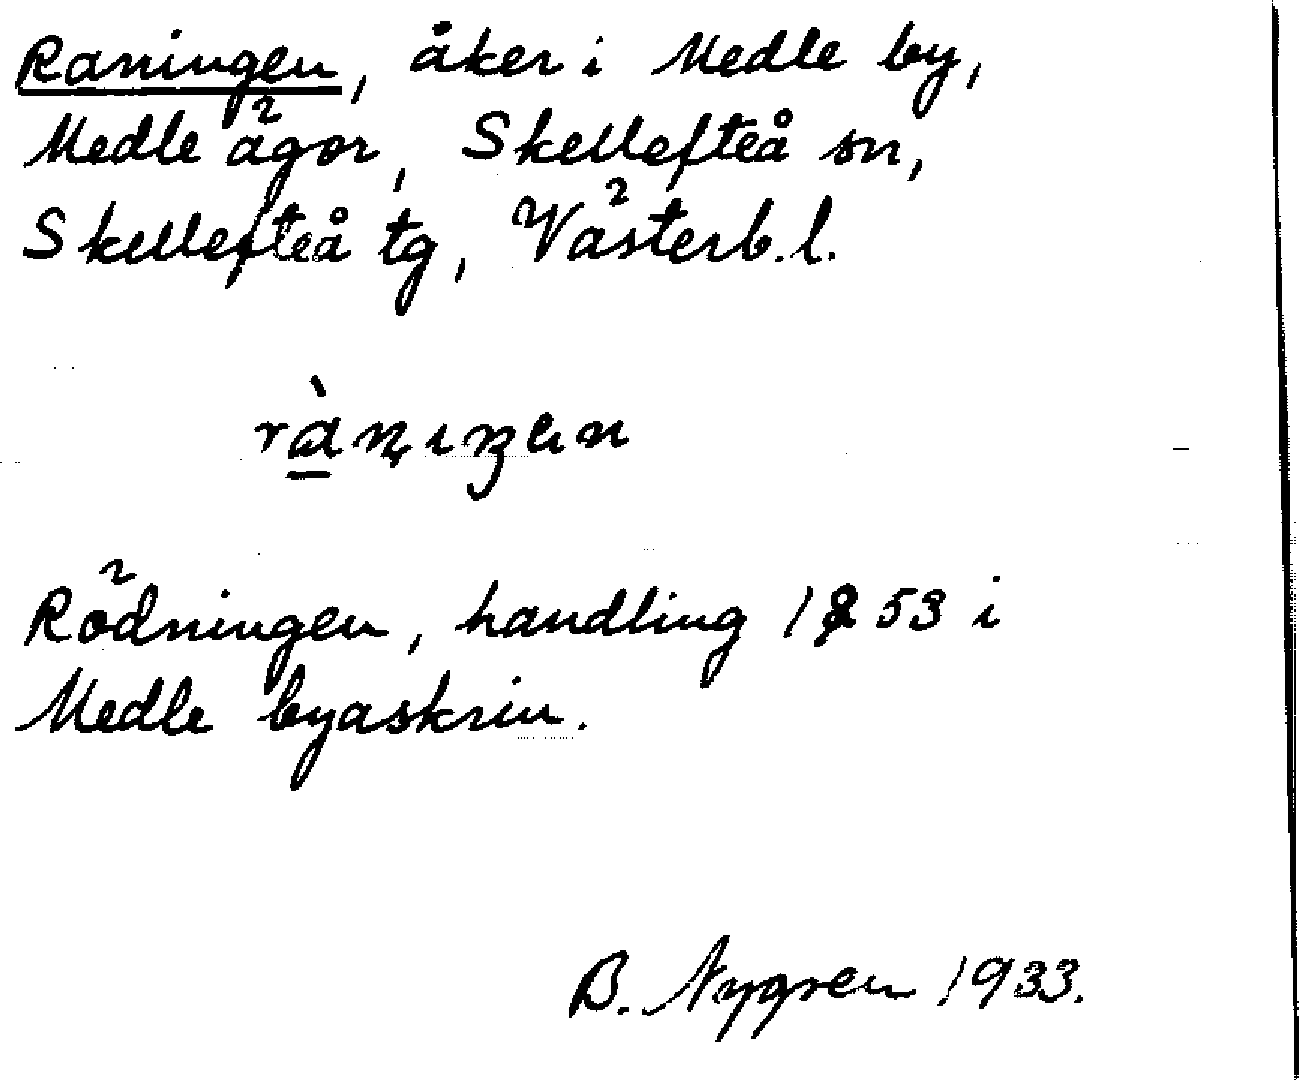 Raningen, åker i Medle by,
Medle ägor, Skellefteå sn,
Skellefteå tg, Västerb. l.
Rödningen, handling 1853 i
Medle byaskrin.
B. Nygren 1933.